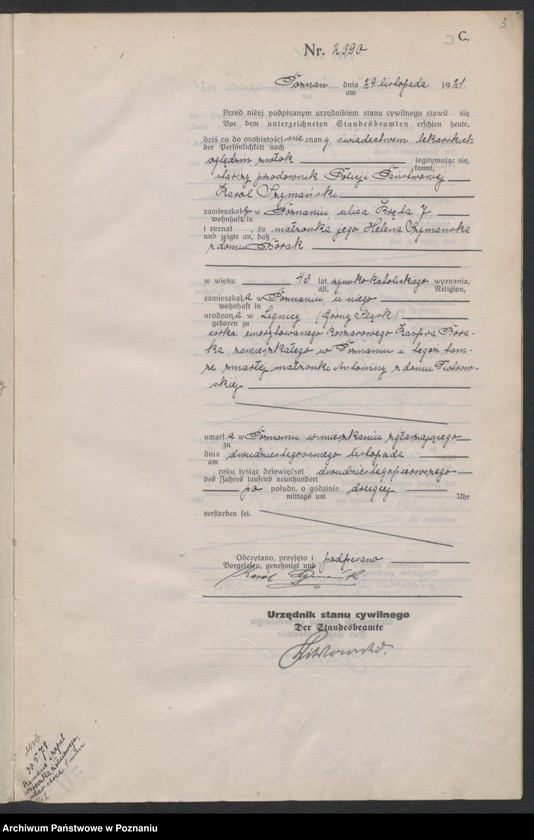 3
C.
Nr. 2390
Poznań dnia 29 listopada 1921
am
Przed niżej podpisanym urzędnikiem stanu cywilnego stawił się
Vor dem unterzeichneten Standesbeamten erschien heute,
dziś co do osobistości nieznany, świadectwem lekarskich
der Persönlichkeit nach
oględzin zwłok legitymując się,
kannt,
starszy przodownik Policji Państwowej
Karol Szymański
zamieszkały w Poznaniu, ulica Kręta 7
wohnhaft in
i zeznał, że małżonka jego Helena Szymańska
und zeigte an, daß
z domu Borak
w wieku 43 lat, rzymsko katolickiego wyznania,
alt, Religion,
zamieszkała w Poznaniu, u niego
wohnhaft in
urodzona w Legnicy (Górny Śląsk)
geboren zu
córka emerytowanego Kaspra Bora-
ka, zamieszkałego w Poznaniu i tegoż tam-
że zmarłej małżonki Antoniny z domu Piotrow-
skiej
umarła w Poznaniu w mieszkaniu zgłaszającego
zu
dnia dwudziestegoósmego listopada
am
roku tysiąc dziewięćset dwudziestegopierwszego
des Jahres tausend neunhundert
po połudn. o godzinie drugiej
mittags um Uhr
verstorben sei.
Odczytano, przyjęto i podpisano
Vorgelesen, genehmigt und
Karol Szymański
Urzędnik stanu cywilnego
Der Standesbeamte
30.5.78
Archiwum Państwowe w Poznaniu